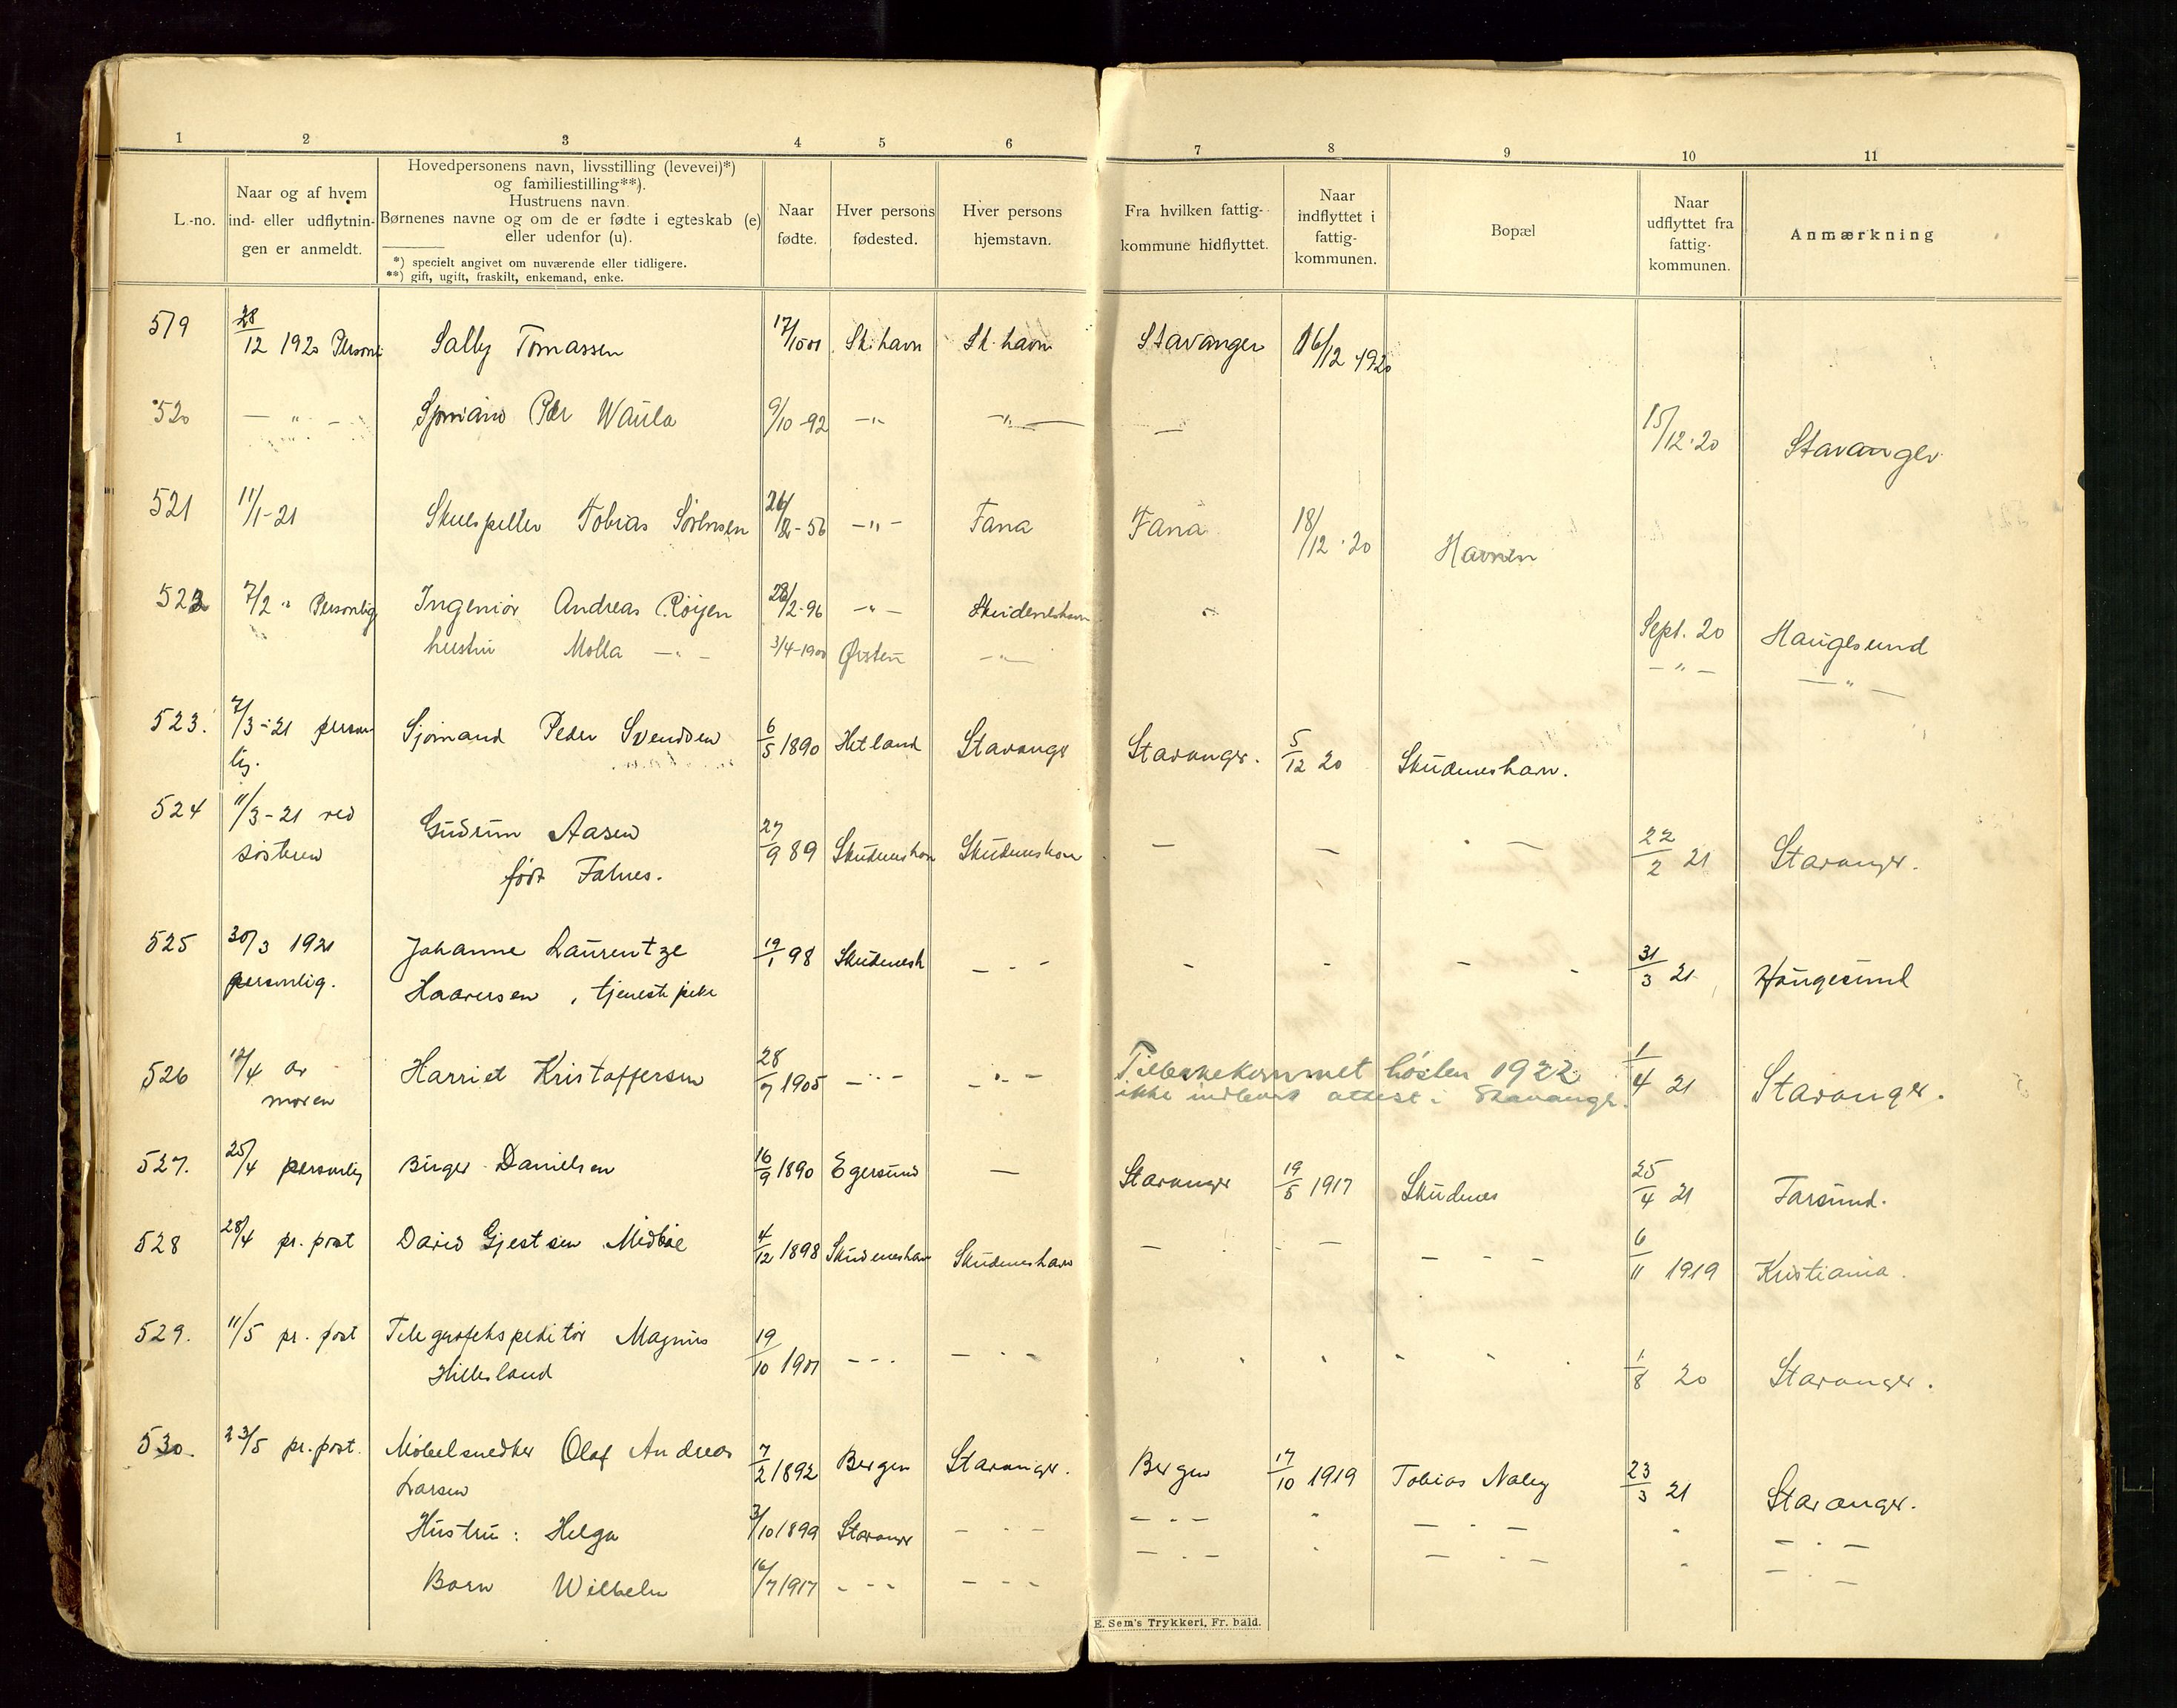 1 2 3 4 5 6 7 8 9 10 11
L.-no.
Naar og af hvem
ind- eller udflytnin-
gen er anmeldt.
Hovedpersonens navn, livsstilling (levevei)*)
og familiestilling**).
Hustruens navn.
Børnenes navne og om de er fødte i egteskab (e)
eller udenfor (u).
*) specielt angivet om nuværende eller tidligere.
**) gift, ugift, fraskilt, enkemand, enke.
Naar
fødte.
Hver persons
fødested.
Hver persons
hjemstavn.
Fra hvilken fattig-
kommune hidflyttet.
Naar
indflyttet i
fattig-
kommunen.
Bopæl
Naar
udflyttet fra
fattig-
kommunen.
Anmærkning
519 28/12 1920 Personl Sally Tomassen Sk.havn Sk.havn Stavanger 16/12 1920
520 — " — Per Waula 9/10-92 —"— —"— — 15/12-20 Stavanger
521 11/1-21 Skuespiller Tobias Sørensen —"— Fana Fana 18/12-20 Havnen
522 7/2 " Personlig Ingeniør Andreas Røijen 28/2-96 —"— Skudeneshavn " Sept. 20 Haugesund
hustru Molla —"— 3/4-1900 Ørsten —"— —"— —"—
523. 7/3-21 person Sjømand Peder Svendsen 6/5 1890 Hetland Stavanger Stavanger. 5/12 20 Skudeneshavn.
lig.
524 11/3-21 ved Gudrun Aasen 27/9 89 Skudeneshavn Skudeneshavn — — — 22/2 21 Stavanger.
søsteren
født Falnes.
525 30/3 1921 Johanne Laurentze 19/1 98 Skudenesh — " — - - — - 31/3 21 Haugesund
personlig. Haaversen, tjenestepike
526 12/4 av Harriet Kristoffersen 28/7 1905 —"— —"— Tilbakekommet høsten 1922 1/4 21 Stavanger.
moren ikke indlevert attest i Stavanger.
527. 25/4 personlig Birger Danielsen 16/9 1890 Egersund — Stavanger 19/5 1917 Skudenes 25/4 21 Farsund.
528 28/4 pr. post David Gjestsen Midbøe 4/12 1898 Skudeneshavn Skudeneshavn — - — — — — 6/11 1919 Kristiania.
529. 11/5 pr. post Telegrafekspeditør Magnus 19/10 1901 - - - — " - 1/8 20 Stavanger.
Hillesland
530. 23/5 pr. post. Møbelsnedker Olaf Andreas 7/2 1892 Bergen Stavanger. Bergen 17/10 1919 Tobias Naley 23/3 21 Stavanger.
Larsen
Hustru: Helga 3/10 1899 Stavanger — " — — " — " — " — " — " —
Barn Wilhelm 16/7 1917 - - - — - - — " — " — " — " — " —
E. Sem's Trykkeri, Fr. hald.